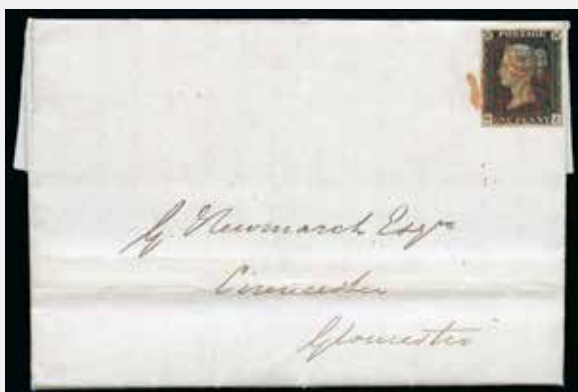 POSTAGE
ONE PENNY
G. Newmarch Esqre
Cirencester
Gloucester